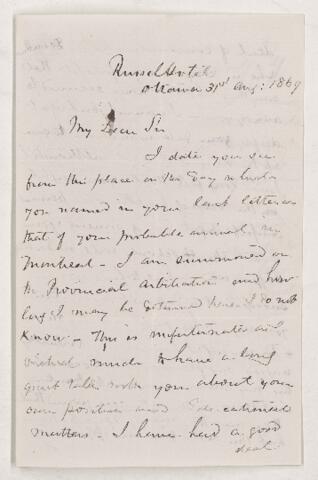 Russel Hotel
Ottawa 31st Aug: 1869
My Dear Sir
I date you
from this place on the day which
you named in your last letter as
that of your probable arrival in
Montreal - I am summoned on
the Provincial Arbitration and how
long I may be detained here I do not
know - This is unfortunate as I
wished much to have a long
quiet talk with you about your
own position and Educational
matters - I have had a good
deal